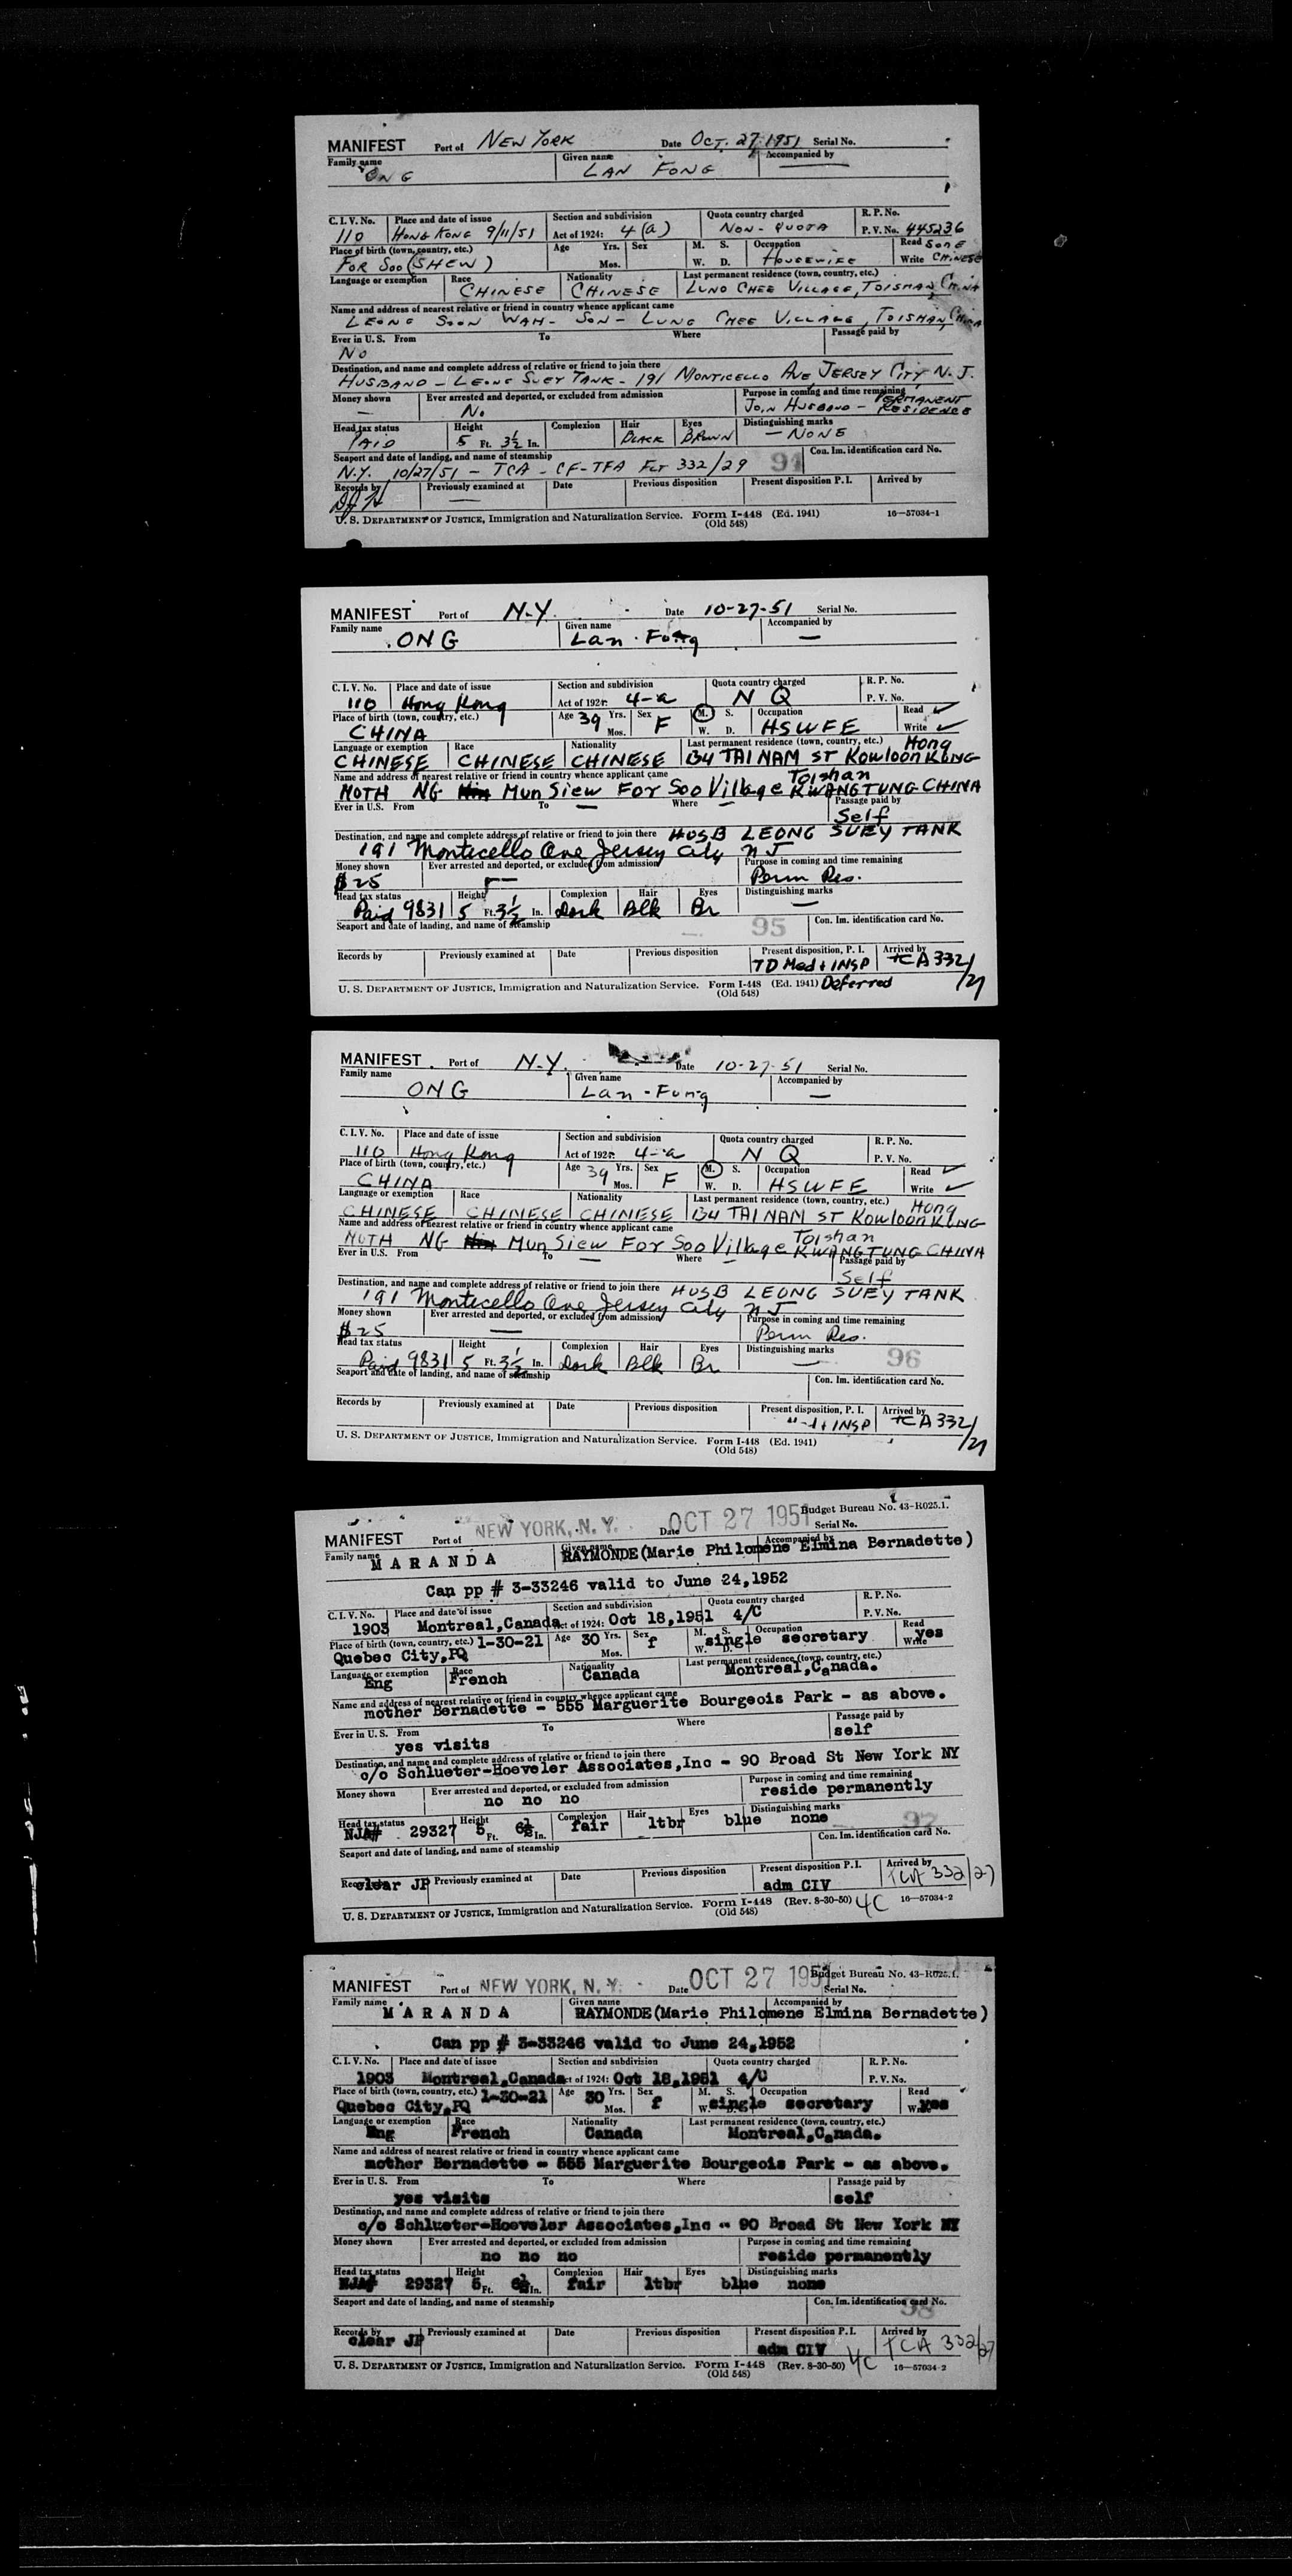 MANIFEST Port of NEW YORK Date OCT. 27, 1951 Serial No.
Family name ONG Given name LAN FONG Accompanied by —
C. I. V. No. Place and date of issue Section and subdivision Quota country charged R. P. No.
110 HONG KONG 9/11/51 Act of 1924: 4(a) NON-QUOTA P. V. No. 445236
Place of birth (town, country, etc.) Age Yrs. Sex M. S. Occupation Read SOME
FOR SOO (SHEW) Mos. W. D. HOUSEWIFE Write CHINESE
Language or exemption Race Nationality Last permanent residence (town, country, etc.)
CHINESE CHINESE LUNG CHEE VILLAGE, TOISHAN, CHINA
Name and address of nearest relative or friend in country whence applicant came
LEONG SOON WAH - SON - LUNG CHEE VILLAGE, TOISHAN, CHINA
Ever in U. S. From To Where Passage paid by
NO
Destination, and name and complete address of relative or friend to join there
HUSBAND - LEONG SUEY TANK - 191 MONTICELLO AVE, JERSEY CITY N. J.
Money shown Ever arrested and deported, or excluded from admission Purpose in coming and time remaining
— NO JOIN HUSBAND - PERMANENT RESIDENCE
Head tax status Height Complexion Hair Eyes Distinguishing marks
PAID 5 Ft. 3½ In. BLACK BROWN — NONE
Seaport and date of landing, and name of steamship Con. Im. identification card No.
N.Y. 10/27/51 - TCA - CF-TFA FLT 332/29 94
Records by Previously examined at Date Previous disposition Present disposition P. I. Arrived by
—
U. S. DEPARTMENT OF JUSTICE, Immigration and Naturalization Service. Form I-448 (Ed. 1941) 16—57034-1
(Old 548)
MANIFEST Port of N.Y. Date 10-27-51 Serial No.
Family name ONG Given name Lan-Fung Accompanied by —
C. I. V. No. Place and date of issue Section and subdivision Quota country charged R. P. No.
110 Hong Kong Act of 1924: 4-a N Q P. V. No.
Place of birth (town, country, etc.) Age 39 Yrs. Sex M. S. Occupation Read ✓
CHINA Mos. F W. D. HSWFE Write ✓
Language or exemption Race Nationality Last permanent residence (town, country, etc.) Hong
CHINESE CHINESE CHINESE 134 TAI NAM ST Kowloon KONG
Name and address of nearest relative or friend in country whence applicant came Toishan
MOTH NG Mun Siew For Soo Village KWANGTUNG CHINA
Ever in U.S. From To — Where — Passage paid by
Self
Destination, and name and complete address of relative or friend to join there HUSB LEONG SUEY TANK
191 Monticello Ave Jersey City NJ
Money shown Ever arrested and deported, or excluded from admission Purpose in coming and time remaining
$25 — Perm Res.
Head tax status Height Complexion Hair Eyes Distinguishing marks
Paid 9831 5 Ft. 3½ In. Dark Blk Br —
Seaport and date of landing, and name of steamship 95 Con. Im. identification card No.
Records by Previously examined at Date Previous disposition Present disposition, P. I. Arrived by
TD Med + INSP TCA 332/27
U. S. DEPARTMENT OF JUSTICE, Immigration and Naturalization Service. Form I-448 (Ed. 1941) Deferred
(Old 548)
MANIFEST Port of N.Y. Date 10-27-51 Serial No.
Family name ONG Given name Lan-Fung Accompanied by —
C. I. V. No. Place and date of issue Section and subdivision Quota country charged R. P. No.
110 Hong Kong Act of 1924: 4-a N Q P. V. No.
Place of birth (town, country, etc.) Age 39 Yrs. Sex M. S. Occupation Read ✓
CHINA Mos. F W. D. HSWFE Write ✓
Language or exemption Race Nationality Last permanent residence (town, country, etc.) Hong
CHINESE CHINESE CHINESE 134 TAI NAM ST Kowloon KONG
Name and address of nearest relative or friend in country whence applicant came Toishan
MOTH NG Mun Siew For Soo Village KWANGTUNG CHINA
Ever in U.S. From To — Where — Passage paid by
Self
Destination, and name and complete address of relative or friend to join there HUSB LEONG SUEY TANK
191 Monticello Ave Jersey City NJ
Money shown Ever arrested and deported, or excluded from admission Purpose in coming and time remaining
$25 — Perm Res.
Head tax status Height Complexion Hair Eyes Distinguishing marks 96
Paid 9831 5 Ft. 3½ In. Dark Blk Br —
Seaport and date of landing, and name of steamship Con. Im. identification card No.
Records by Previously examined at Date Previous disposition Present disposition, P. I. Arrived by
+ INSP TCA 332/27
U. S. DEPARTMENT OF JUSTICE, Immigration and Naturalization Service. Form I-448 (Ed. 1941)
(Old 548)
Budget Bureau No. 43-R025.1.
MANIFEST Port of NEW YORK, N. Y. Date OCT 27 1951 Serial No.
Family name MARANDA Given name RAYMONDE(Marie Philomene Elmina Bernadette) Accompanied by
Can pp # 3-33246 valid to June 24,1952
C. I. V. No. Place and date of issue Section and subdivision Quota country charged R. P. No.
1903 Montreal,Canada Act of 1924: Oct 18,1951 4/C P. V. No.
Place of birth (town, country, etc.) 1-30-21 Age 30 Yrs. Sex f M. S. Occupation Read
Quebec City,PQ Mos. W. D. single secretary Write yes
Language or exemption Race Nationality Last permanent residence (town, country, etc.)
Eng French Canada Montreal,Canada.
Name and address of nearest relative or friend in country whence applicant came
mother Bernadette - 555 Marguerite Bourgeois Park - as above.
Ever in U. S. From To Where Passage paid by
yes visits self
Destination, and name and complete address of relative or friend to join there
c/o Schlueter-Hoeveler Associates,Inc - 90 Broad St New York NY
Money shown Ever arrested and deported, or excluded from admission Purpose in coming and time remaining
no no no reside permanently
Head tax status Height Complexion Hair Eyes Distinguishing marks
NJA# 29327 5 Ft. 6½ In. fair ltbr blue none 97
Seaport and date of landing, and name of steamship Con. Im. identification card No.
Records by Previously examined at Date Previous disposition Present disposition P. I. Arrived by
clear JP adm CIV TCA 332/27
U. S. DEPARTMENT OF JUSTICE, Immigration and Naturalization Service. Form I-448 (Rev. 8-30-50) 4C 16—57034-2
(Old 548)
Budget Bureau No. 43-R025.1.
MANIFEST Port of NEW YORK, N. Y. Date OCT 27 1951 Serial No.
Family name MARANDA Given name RAYMONDE(Marie Philomene Elmina Bernadette) Accompanied by
Can pp # 3-33246 valid to June 24,1952
C. I. V. No. Place and date of issue Section and subdivision Quota country charged R. P. No.
1903 Montreal,Canada Act of 1924: Oct 18,1951 4/C P. V. No.
Place of birth (town, country, etc.) 1-30-21 Age 30 Yrs. Sex f M. S. Occupation Read
Quebec City,PQ Mos. W. D. single secretary Write yes
Language or exemption Race Nationality Last permanent residence (town, country, etc.)
Eng French Canada Montreal,Canada.
Name and address of nearest relative or friend in country whence applicant came
mother Bernadette - 555 Marguerite Bourgeois Park - as above.
Ever in U. S. From To Where Passage paid by
yes visits self
Destination, and name and complete address of relative or friend to join there
c/o Schlueter-Hoeveler Associates,Inc - 90 Broad St New York NY
Money shown Ever arrested and deported, or excluded from admission Purpose in coming and time remaining
no no no reside permanently
Head tax status Height Complexion Hair Eyes Distinguishing marks
NJA# 29327 5 Ft. 6½ In. fair ltbr blue none
Seaport and date of landing, and name of steamship Con. Im. identification card No.
98
Records by Previously examined at Date Previous disposition Present disposition P. I. Arrived by
clear JP adm CIV TCA 332/27
U. S. DEPARTMENT OF JUSTICE, Immigration and Naturalization Service. Form I-448 (Rev. 8-30-50) 4C 16—57034-2
(Old 548)